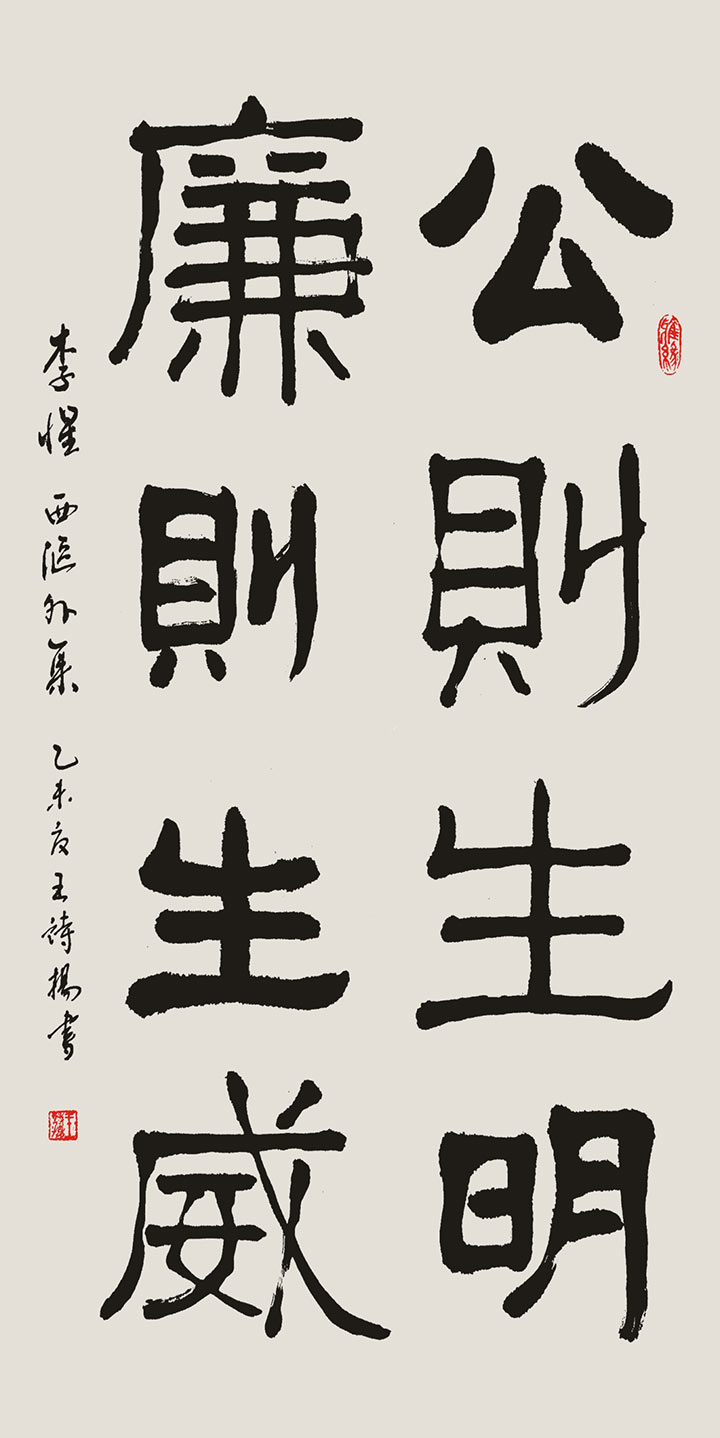 公則生明
廉則生威
李惺 西漚外集 乙未夏王詩揚書